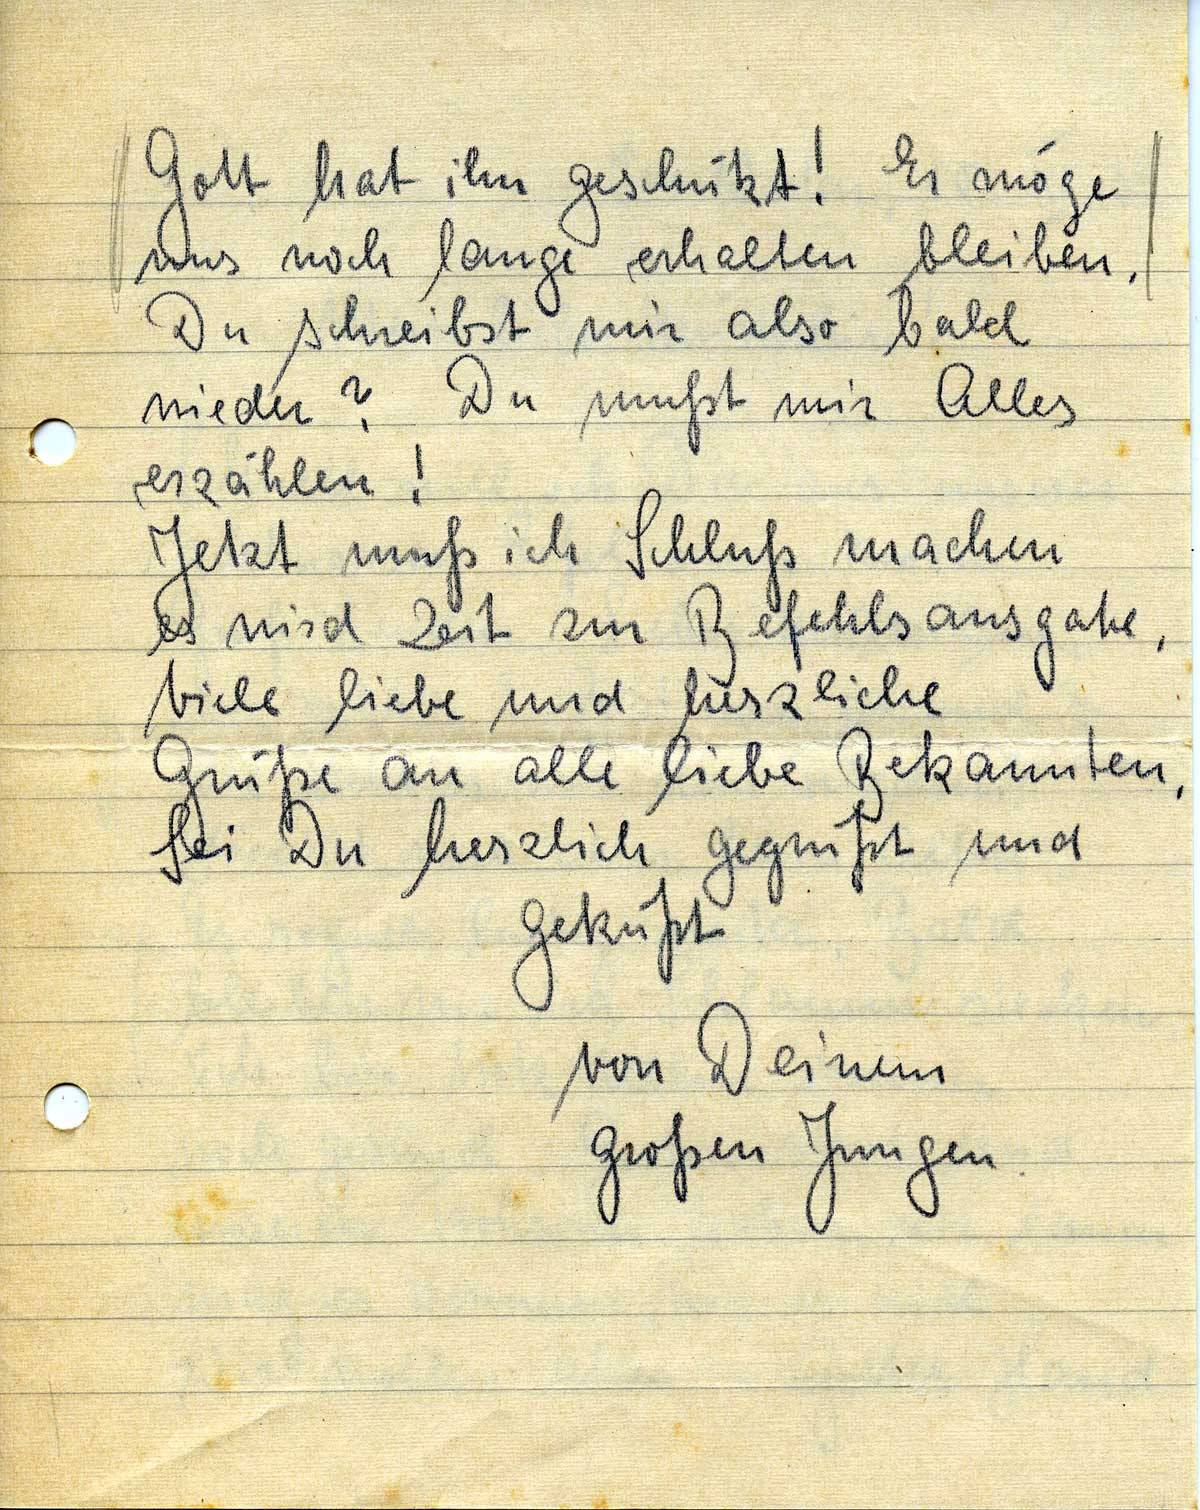 Gott hat ihn geschützt! Er möge
uns noch lange erhalten bleiben.
Du schreibst mir also bald
wieder? Du mußt mir Alles
erzählen!
Jetzt muß ich Schluß machen
es wird Zeit zur Befehlsausgabe,
viele liebe und herzliche
Grüße an alle liebe Bekannten,
Sei Du herzlich gegrüßt und
geküßt
von Deinem
großen Jungen.